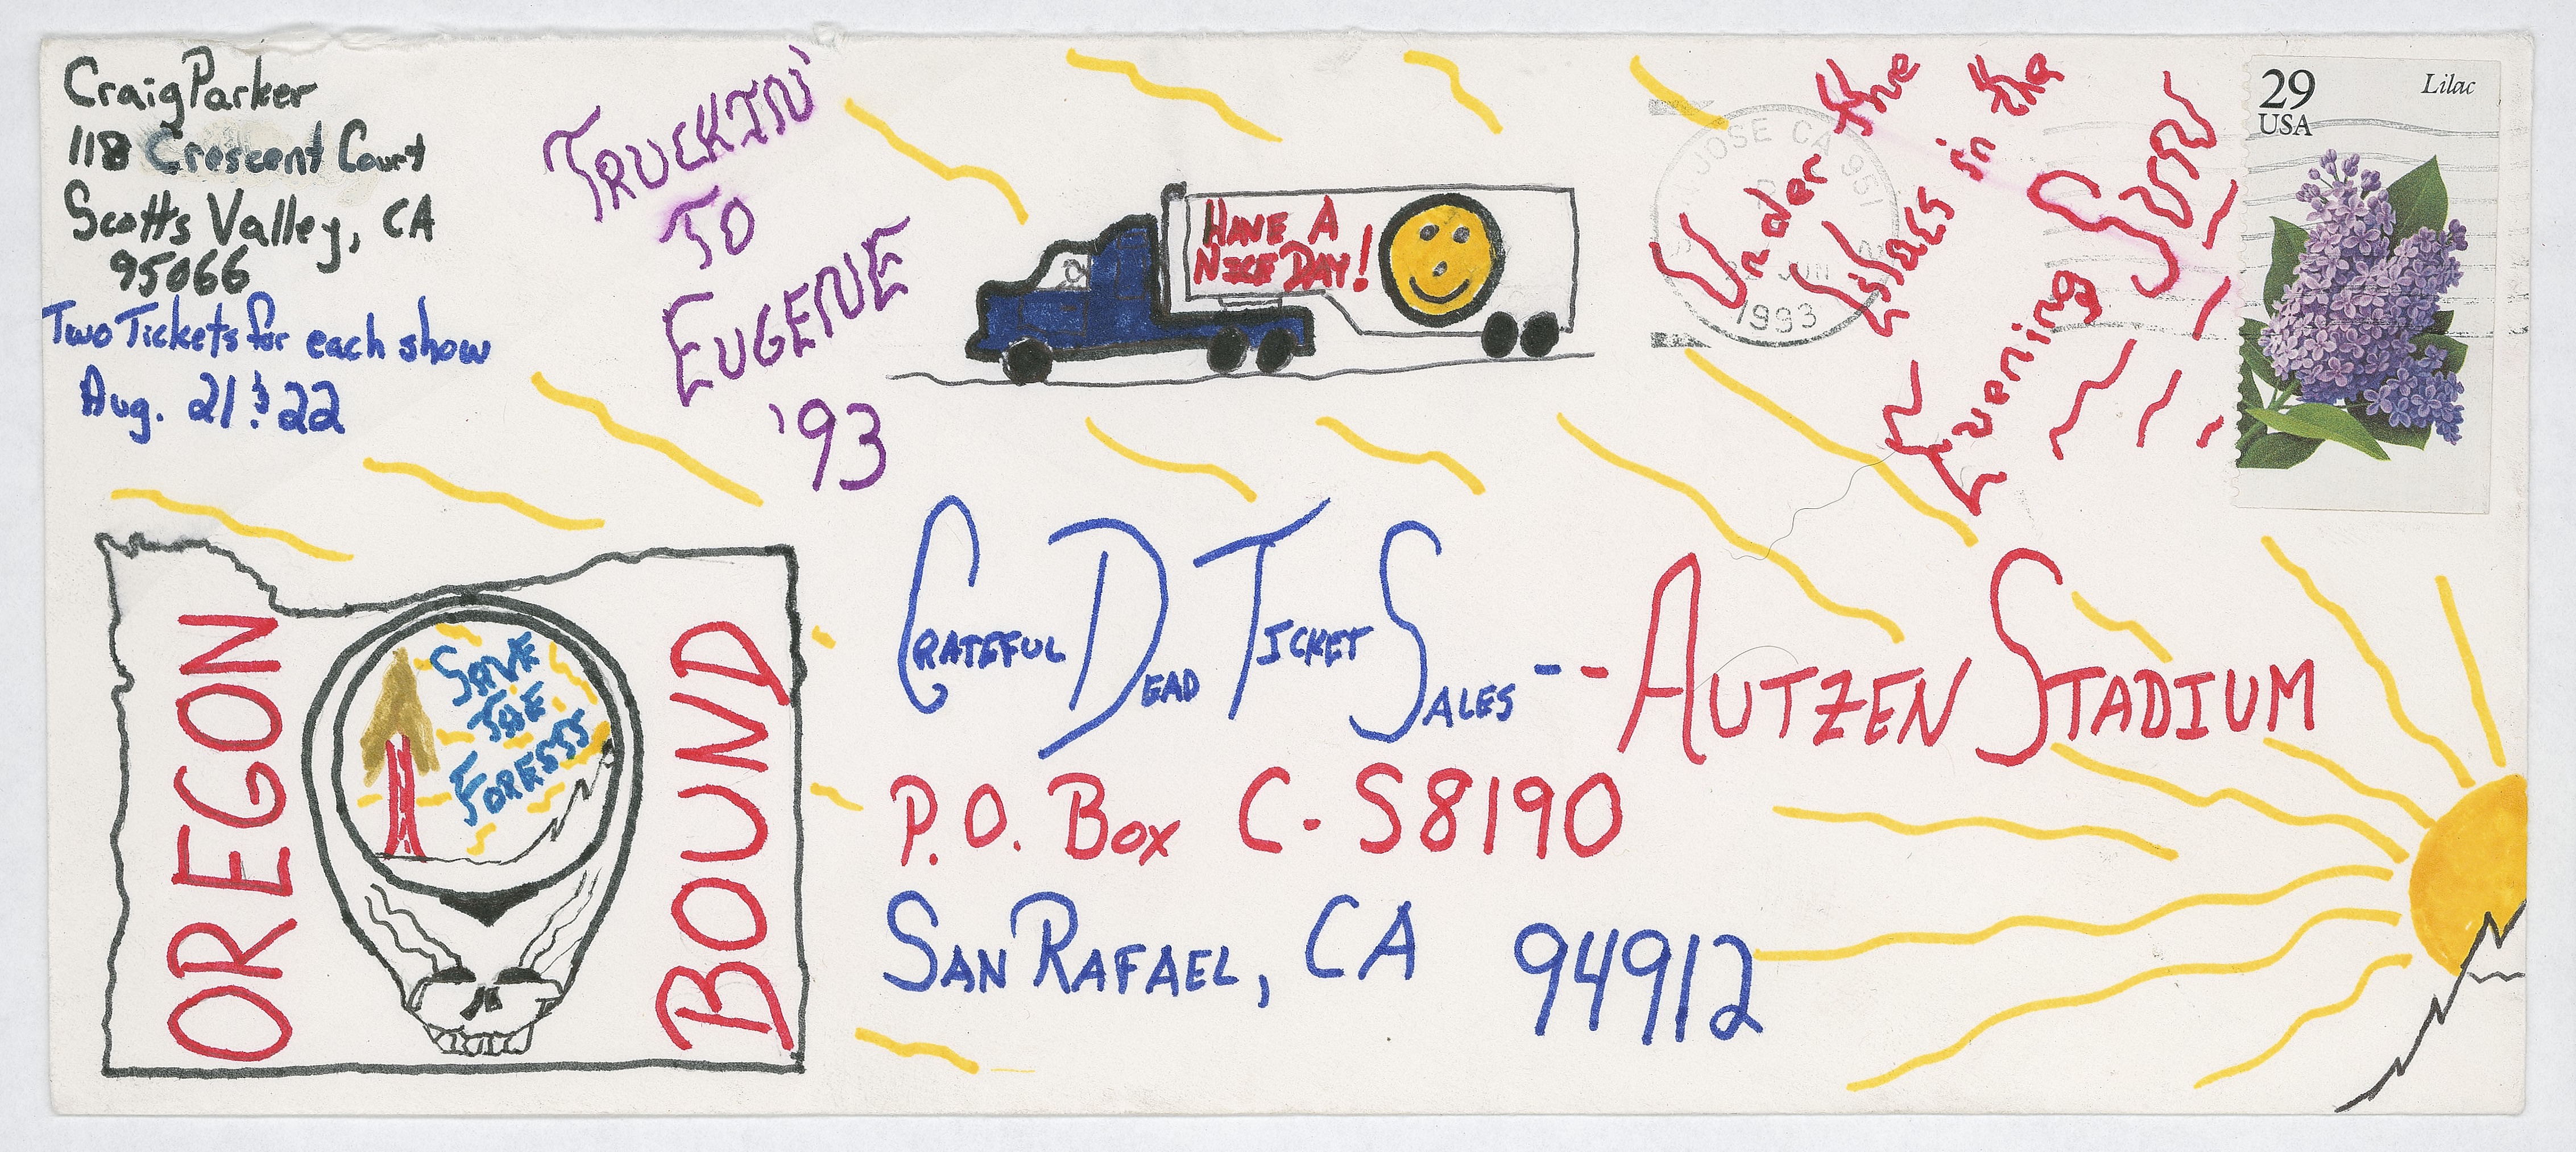 Craig Parker
118 Crescent Court
Scotts Valley, CA
95066
Two Tickets for each show
Aug. 21 & 22
TRUCKIN'
TO
EUGENE
'93
HAVE A
NICE DAY!
JOSE CA 951
1993
Under the
Lilacs in the
Evening Sun
29
USA
Lilac
OREGON
SAVE
THE
FORESTS
BOUND
GRATEFUL DEAD TICKET SALES -- AUTZEN STADIUM
P.O. Box C-S8190
SAN RAFAEL, CA 94912